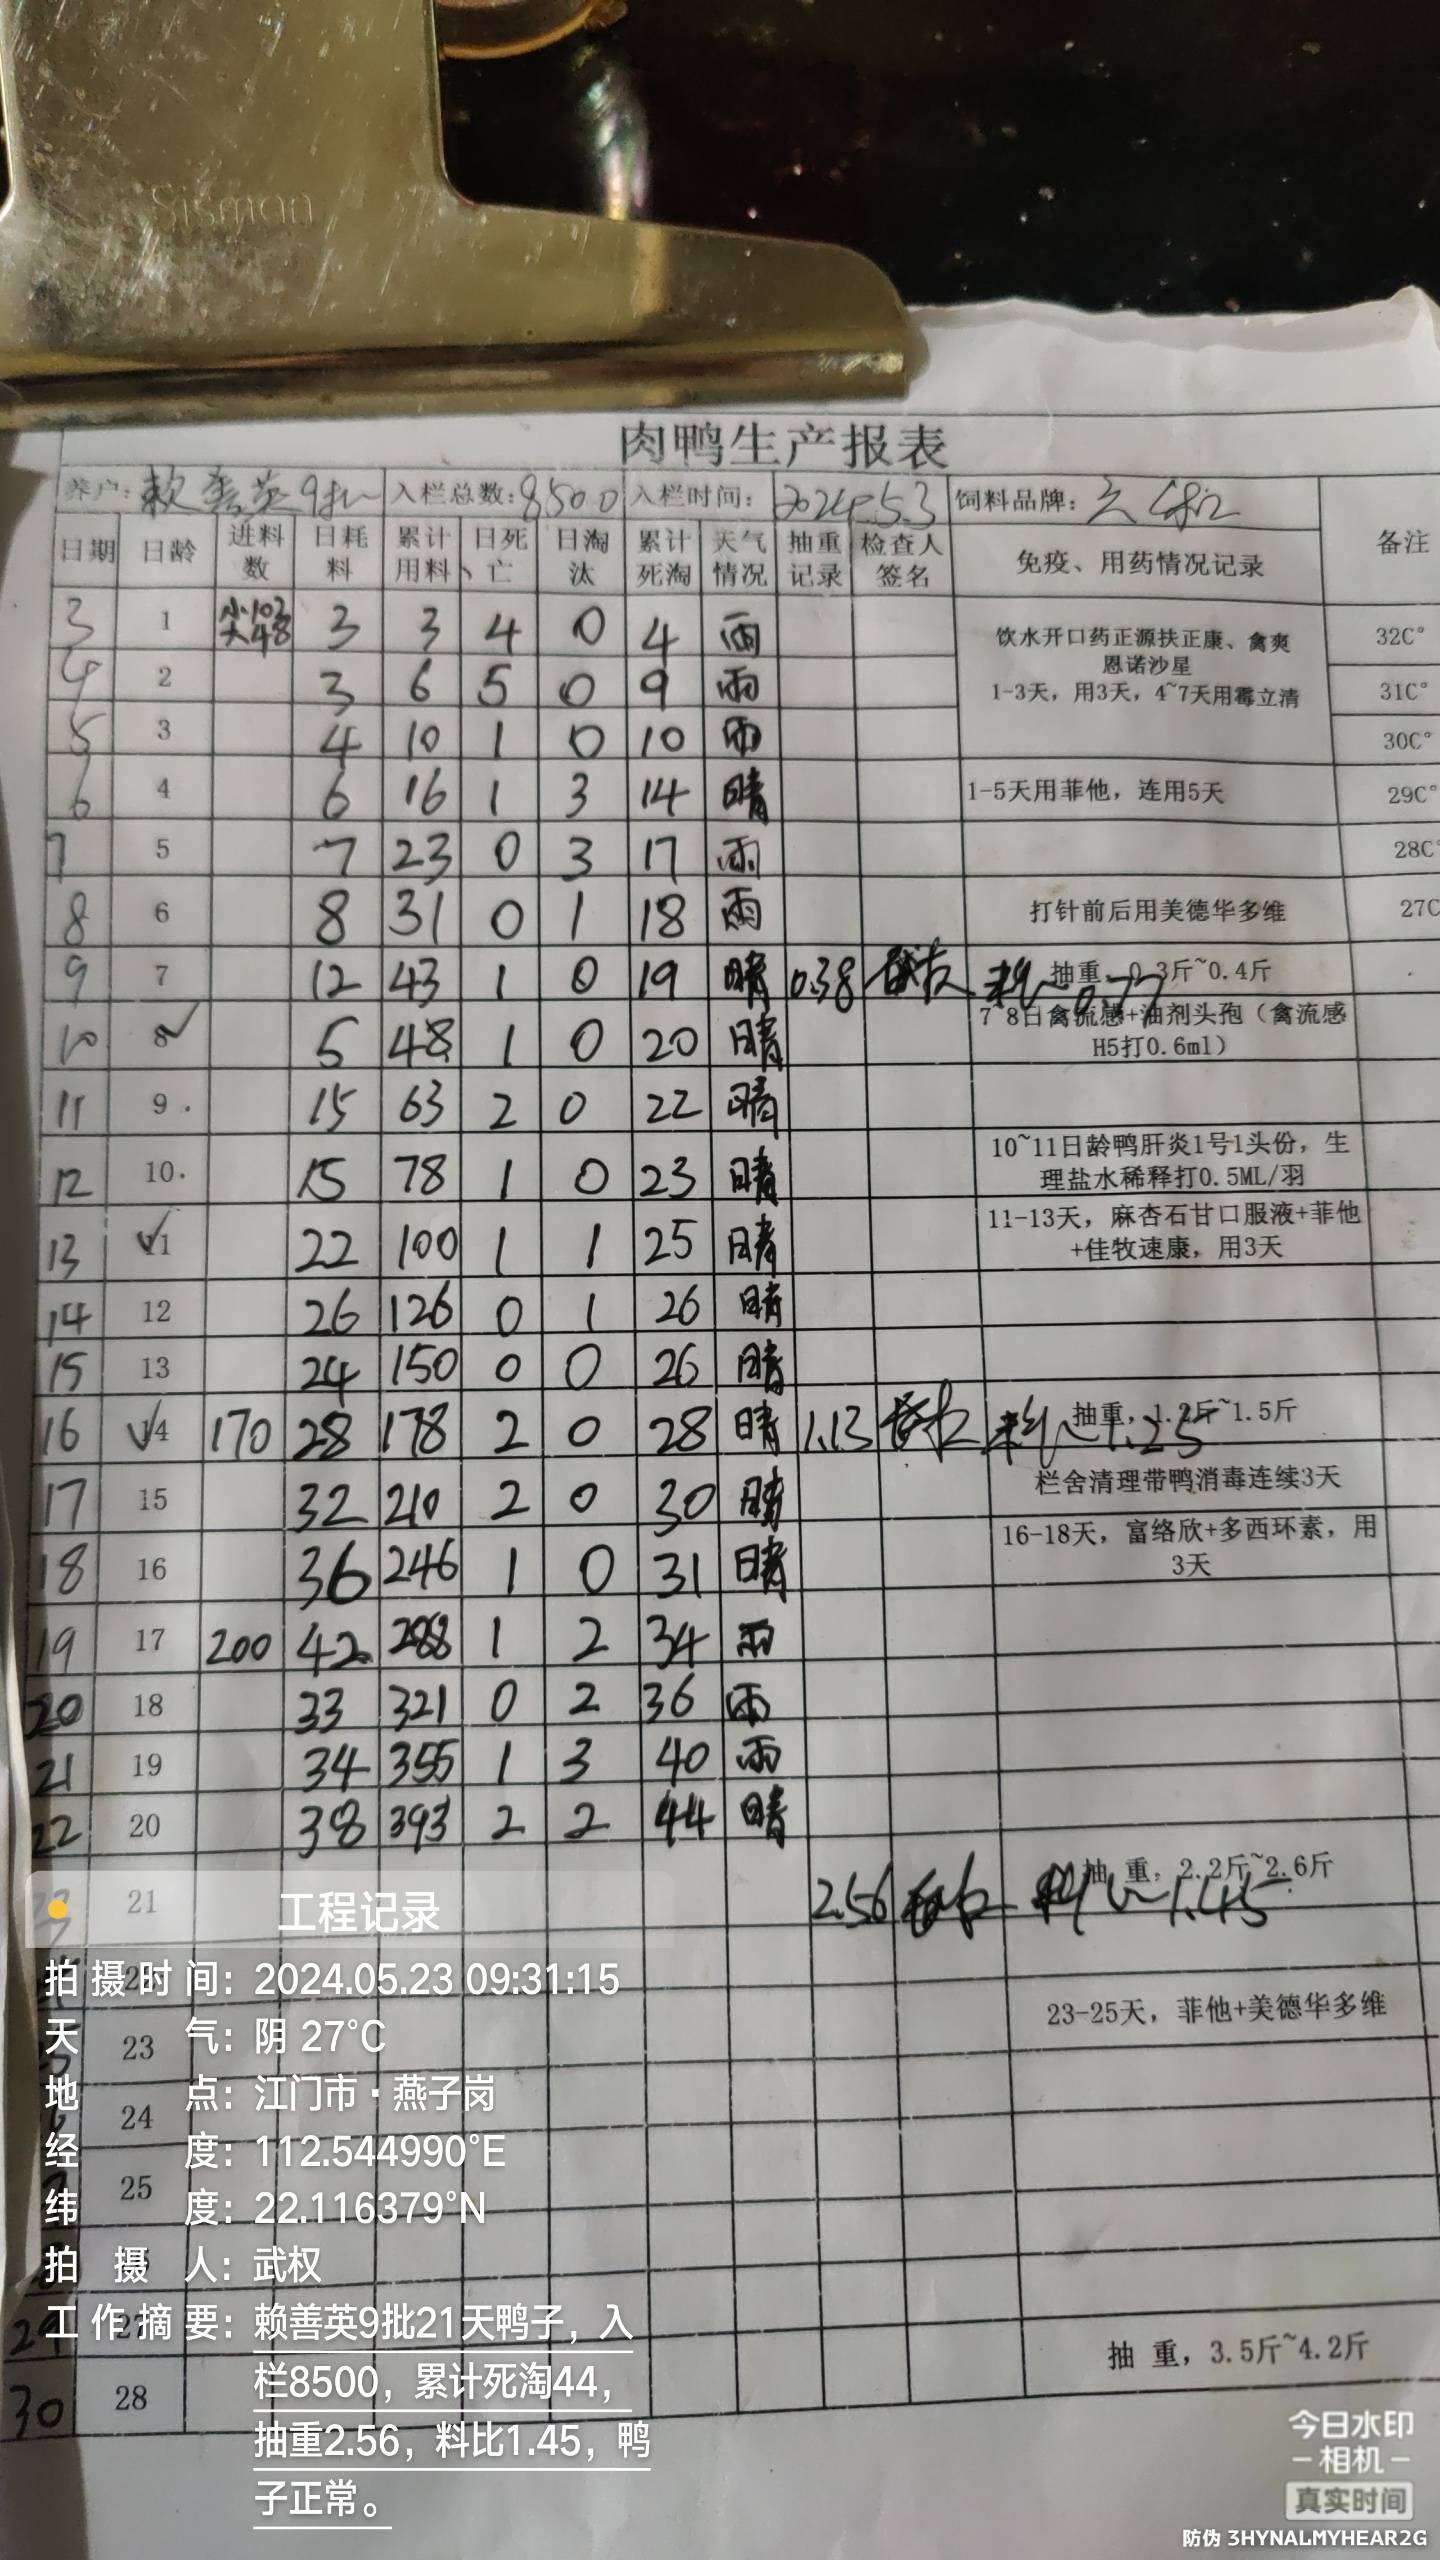 Sisman
肉鸭生产报表
养户: 赖善英9批 入栏总数: 8500 入栏时间: 2024.5.3 饲料品牌:
日期 日龄 进料数 日耗料 累计用料 日死亡 日淘汰 累计死淘 天气情况 抽重记录 检查人签名 免疫、用药情况记录 备注
3 1 小102 大48 3 3 4 0 4 雨 饮水开口药正源扶正康、禽爽 32C°
恩诺沙星
4 2 3 6 5 0 9 雨 1-3天，用3天，4~7天用霉立清 31C°
5 3 4 10 1 0 10 雨 30C°
6 4 6 16 1 3 14 晴 1-5天用菲他，连用5天 29C°
7 5 7 23 0 3 17 雨 28C°
8 6 8 31 0 1 18 雨 打针前后用美德华多维 27C
9 7 12 43 1 0 19 晴 0.38 抽重，0.3斤~0.4斤 料比0.77
10 8 5 48 1 0 20 晴 7~8日禽流感+油剂头孢（禽流感
H5打0.6ml）
11 9 15 63 2 0 22 晴
12 10 15 78 1 0 23 晴 10~11日龄鸭肝炎1号1头份，生
理盐水稀释打0.5ML/羽
13 11 22 100 1 1 25 晴 11-13天，麻杏石甘口服液+菲他
+佳牧速康，用3天
14 12 26 126 0 1 26 晴
15 13 24 150 0 0 26 晴
16 14 170 28 178 2 0 28 晴 1.13 抽重，1.2斤~1.5斤 料比1.25
17 15 32 210 2 0 30 晴 栏舍清理带鸭消毒连续3天
18 16 36 246 1 0 31 晴 16-18天，富络欣+多西环素，用
3天
19 17 200 42 288 1 2 34 雨
20 18 33 321 0 2 36 雨
21 19 34 355 1 3 40 雨
22 20 38 393 2 2 44 晴
23 21 2.56 抽 重，2.2斤~2.6斤 料比1.45
工程记录
拍摄时间: 2024.05.23 09:31:15
23-25天，菲他+美德华多维
天气: 阴 27°C
23
地点: 江门市·燕子岗
24
经度: 112.544990°E
25
纬度: 22.116379°N
拍摄人: 武权
29 27
工作摘要: 赖善英9批21天鸭子，入
栏8500，累计死淘44，
抽重2.56，料比1.45，鸭
子正常。
抽 重，3.5斤~4.2斤
30 28
今日水印
-相机-
真实时间
防伪 3HYNALMYHEAR2G